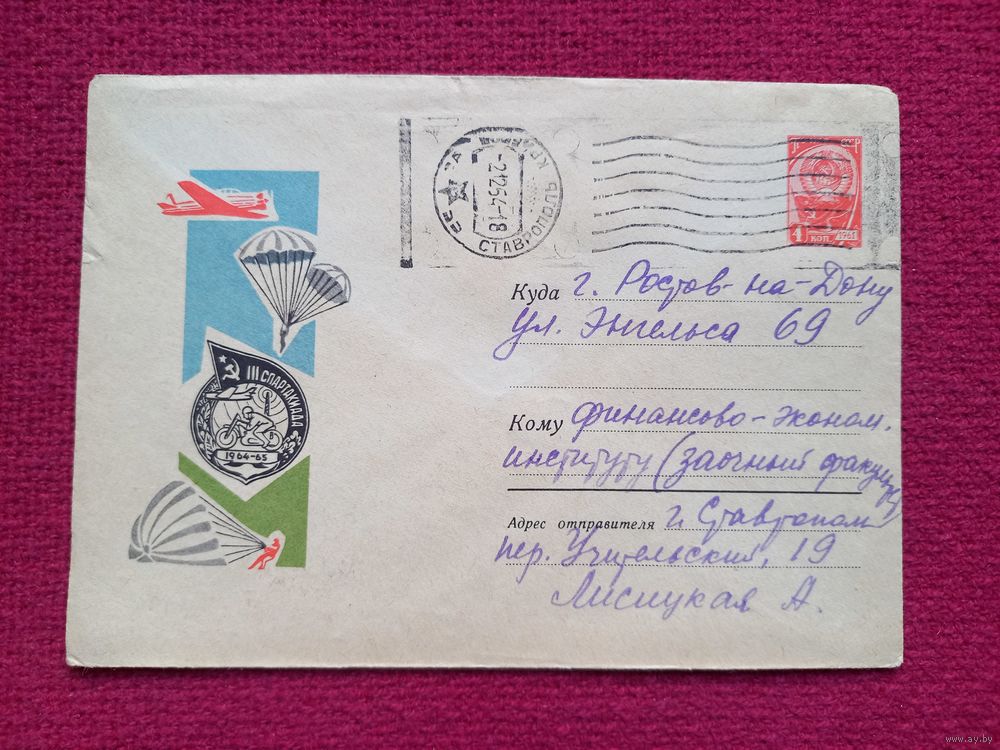 СТАВРОПОЛЬ КРАЕВ
-21254-18
4 КОП 1961
III СПАРТАКИАДА
1964-65
Куда г. Ростов-на-Дону
ул. Энгельса 69
Кому финансово-эконом.
институту (заочный факультет)
Адрес отправителя г. Ставрополь
пер. Учительский, 19
Лисицкая А.
www.ay.by